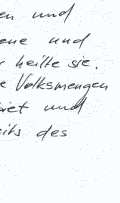 en und
ene und
r heilte sie.
e Volksmengen
biet und
eits des